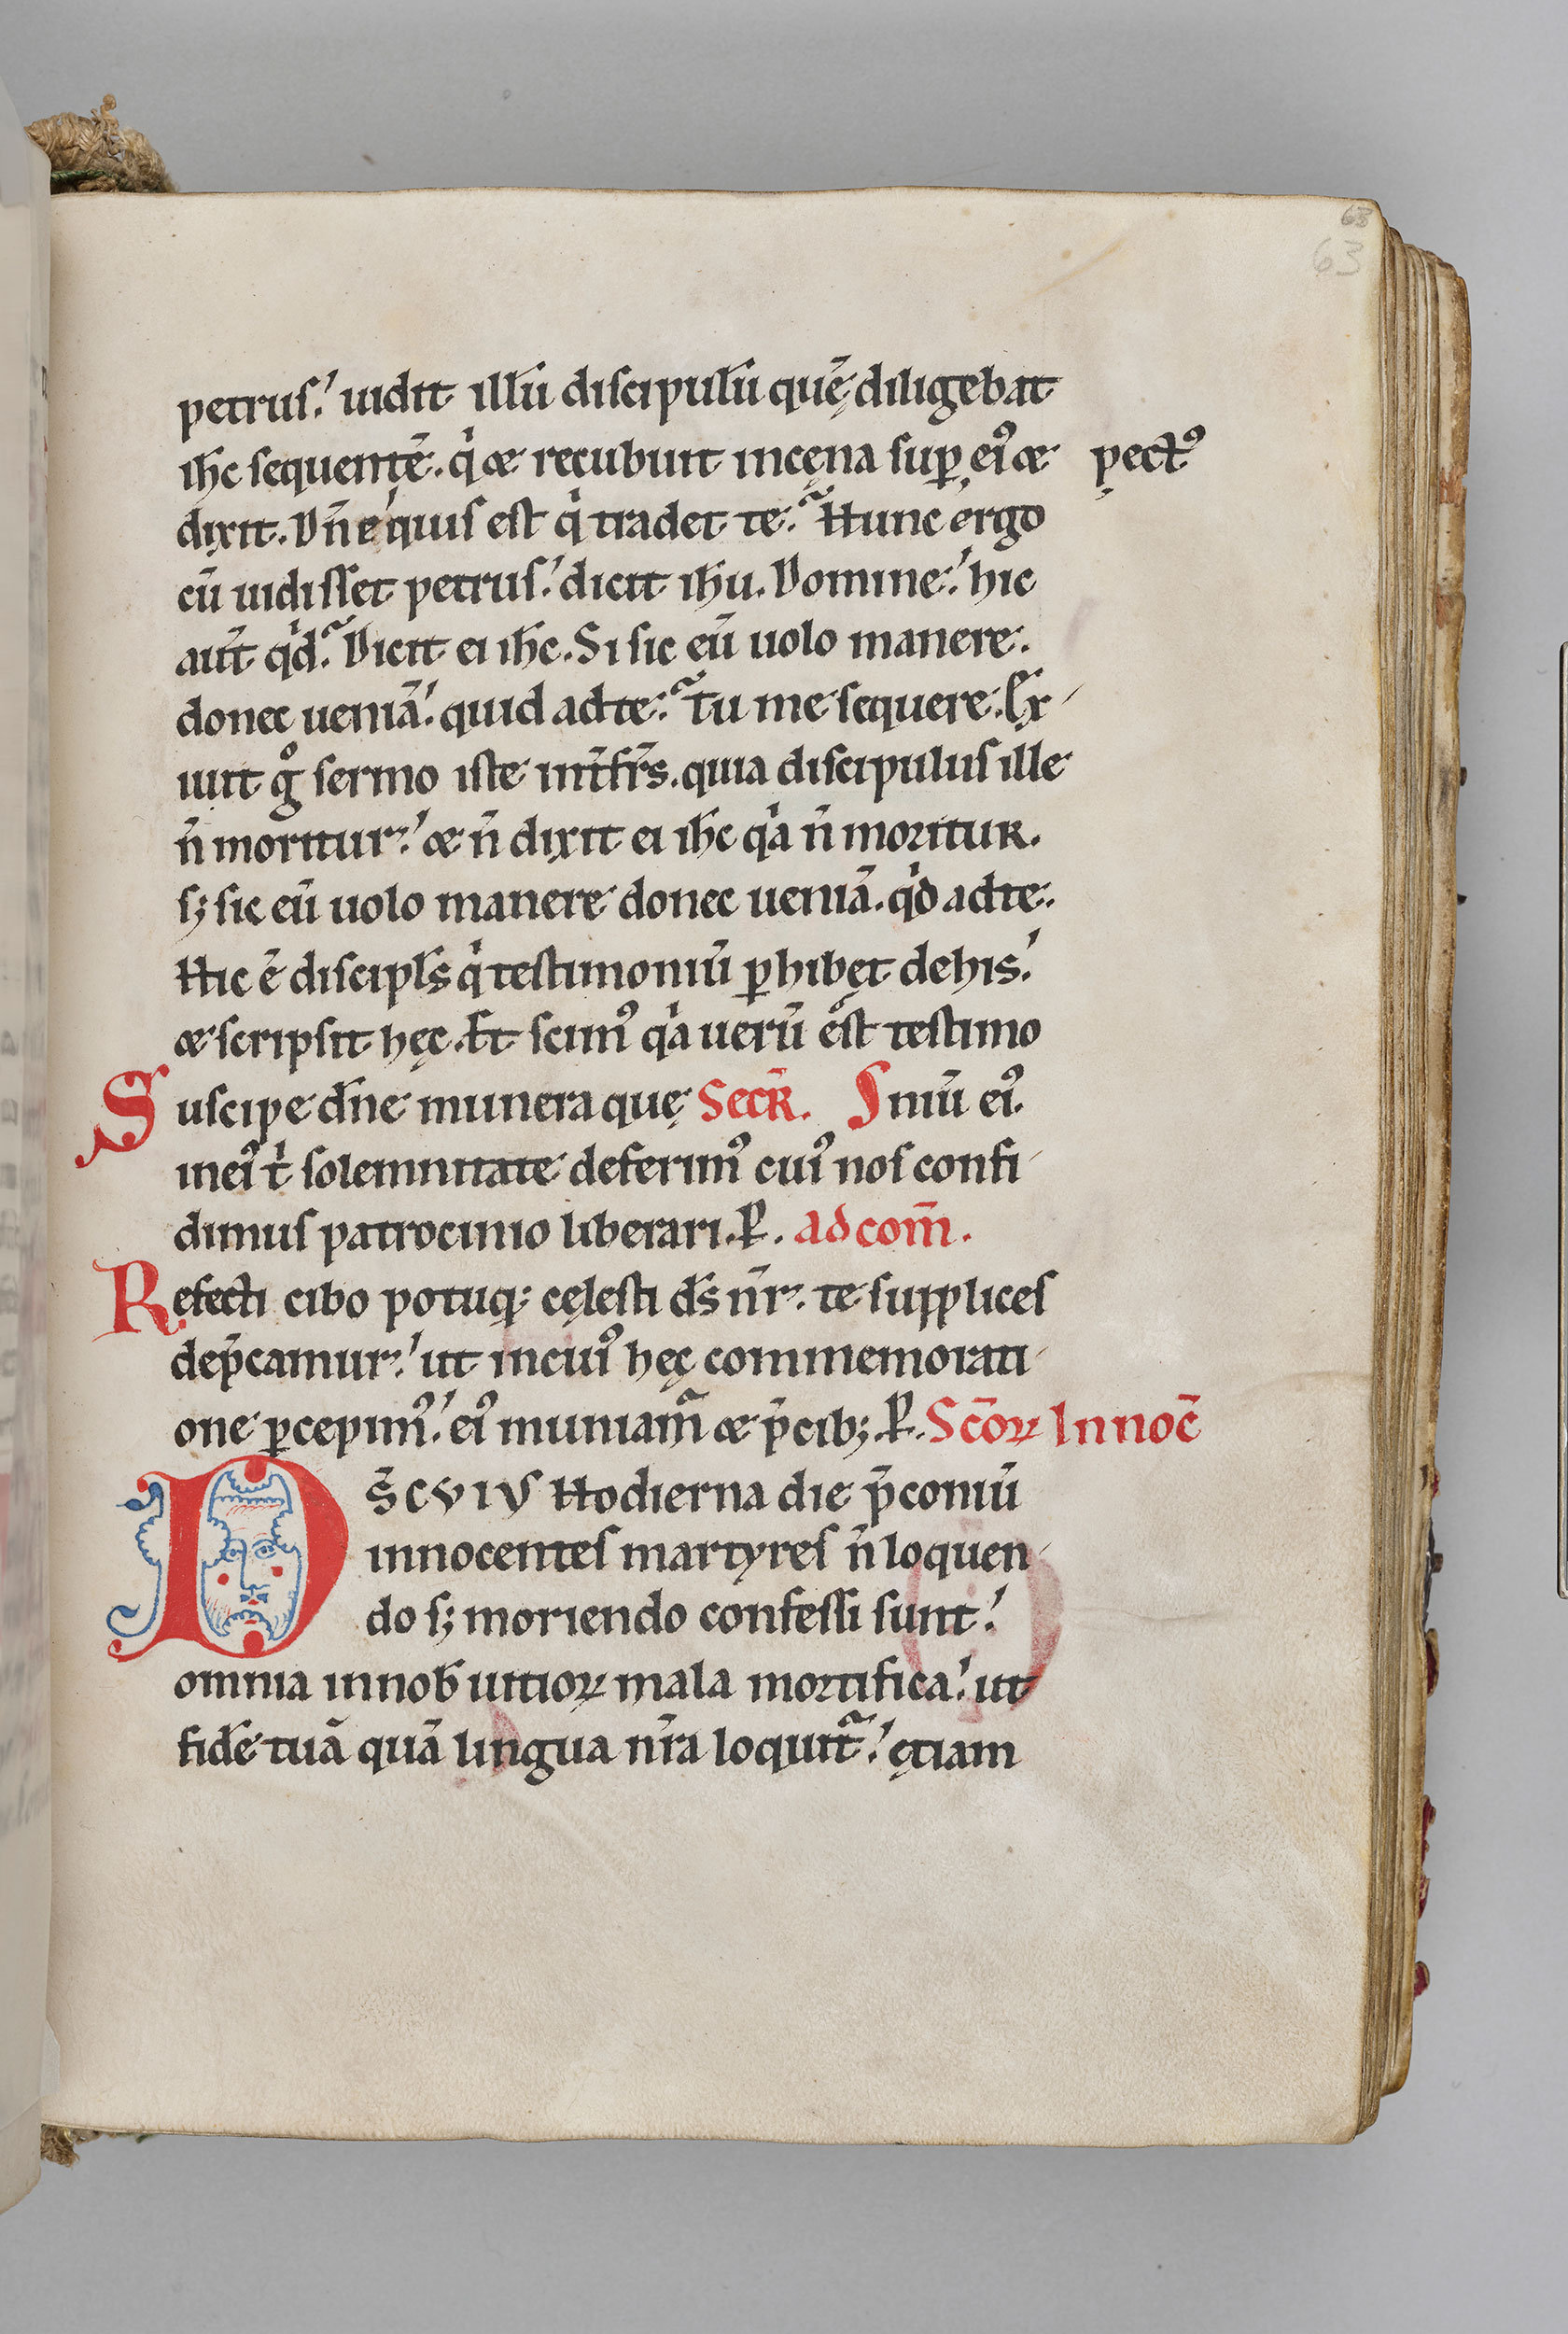 63
63
petrus. uidit illū discipulū quē diligebat
ihc sequentē. q̇ & recubuit in cęna sup ei᾿ & pect᾿
dixit. Dn̄e quis est q̇ tradet te. Hunc ergo
cū uidisset petrus. dicit ihu. Domine. hic
aut̄ qd. Dicit ei ihc. Si sic eū uolo manere.
donec ueniā. quid ad te. Tu me sequere. Ex
iuit gͦ sermo iste int̄ fr̄s. quia discipulus ille
n̄ moritur. & n̄ dixit ei ihc qa n̄ moritur.
sꝫ sic eū uolo manere donec ueniā. qd ad te.
Hic ē discipl̄s q̇ testimoniū ꝑhibet de his.
& scripsit hęc. Et scim᾿ qa uerū est testimo
Suscipe dn̄e munera quę Secr̄. niū ei᾿.
in ei᾿ t̄ solemnitate deferim᾿ cui᾿ nos confi
dimus patrocinio liberari. P. ad com̄.
Refecti cibo potuq; cęlesti ds̄ nr̄. te supplices
dep̄camur. ut in cui᾿ hęc commemorati
one ꝑcepim᾿. ei᾿ muniam̄ & p̄cibꝫ. P. Sc̄oꝝ Innoc̄
Ds̄ CVIVS Hodierna die p̄coniū
innocentes martyres n̄ loquen
do sꝫ moriendo confessi sunt.
omnia in nob̄ uitioꝝ mala mortifica. ut
fidē tuā quā lingua nr̄a loquit̄. ętiam